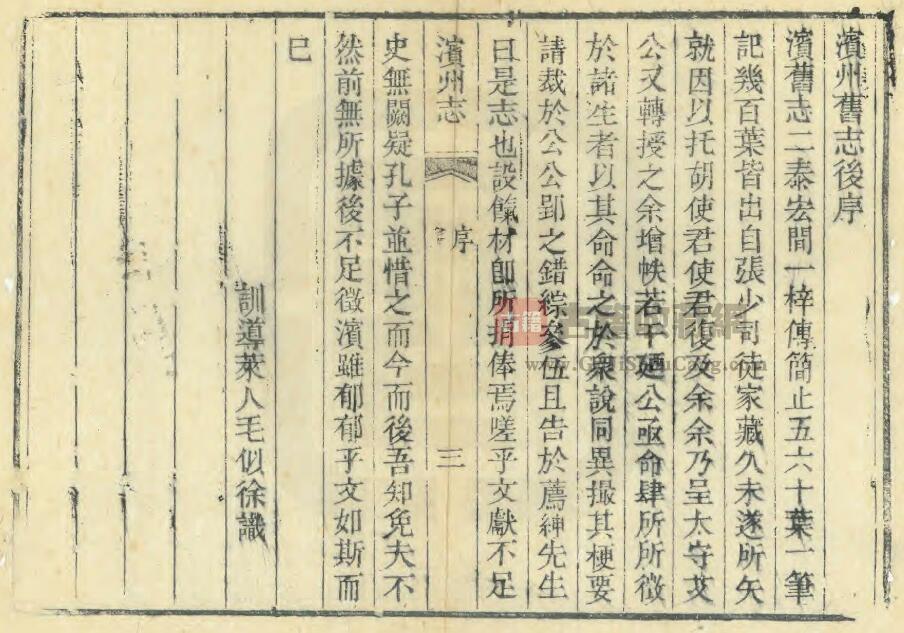 濱州舊志後序
濱舊志二泰宏間一梓傳簡止五六十葉一筆
記幾百葉皆出自張少司徒家藏久未遂所矢
就因以托胡使君使君復及余余乃呈太守艾
公又轉授之余增帙若干廼公亟命肆所所徵
於諸生者以其命命之於衆說同異撮其梗要
請裁於公公郢之錯綜參伍且告於薦紳先生
曰是志也設餼材卽所捐俸焉嗟乎文獻不足
濱州志 序 三
史無闕疑孔子並惜之而今而後吾知免夫不
然前無所據後不足徵濱雖郁郁乎文如斯而
巳
訓導萊人毛似徐識
古籍
www.GuJiShuCang.com